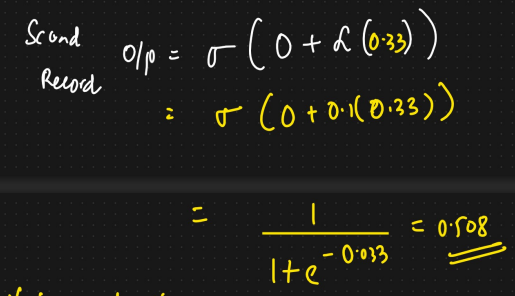 Scond
Record
O/p = σ (0 + α (0.33))
= σ (0 + 0.1(0.33))
= 1 / (1+e^-0.033) = 0.508